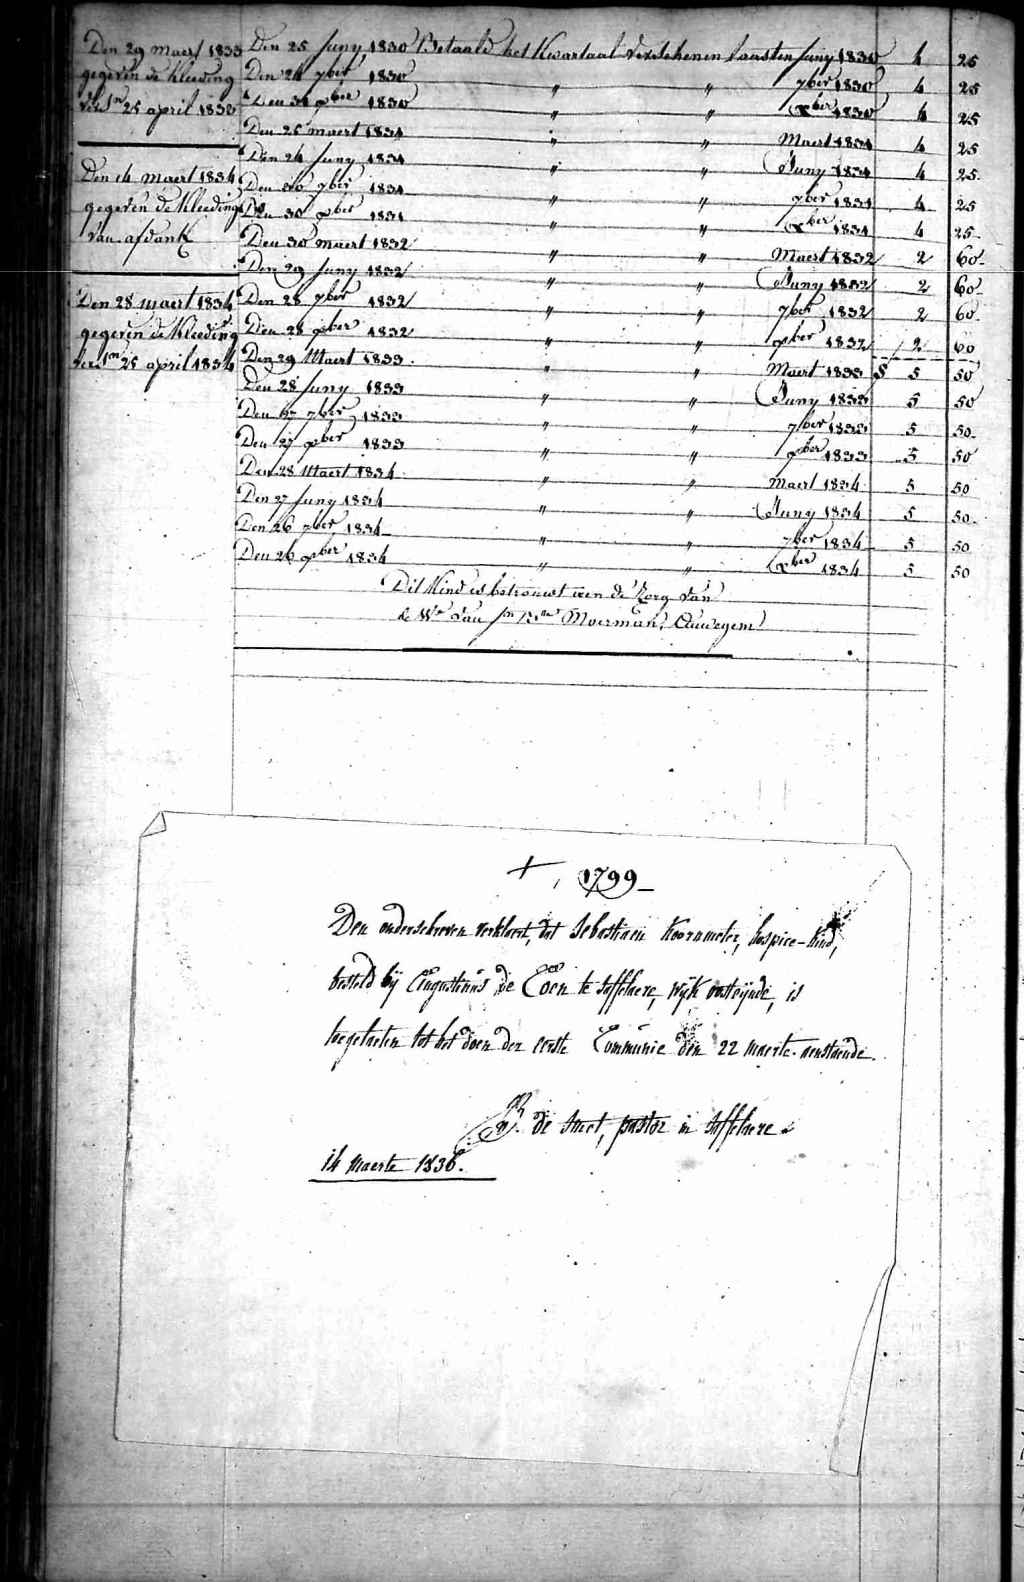 Den 29 maert 1833
gegeven de kleeding
25 april 1833
Den 14 maert 1834
gegeven de kleeding
van afdank
Den 28 maert 1834
gegeven de kleeding
25 april 1834
Den 25 Juny 1830 Betaald het Kwartaal verschenen laatsten Juny 1830 4 25
Den 24 7ber 1830 " " 7ber 1830 4 25
Den 31 xber 1830 " " xber 1830 4 25
Den 25 maert 1831 " " Maert 1831 4 25
Den 24 Juny 1831 " " Juny 1831 4 25
Den 30 7ber 1831 " " 7ber 1831 4 25
Den 30 xber 1831 " " xber 1831 4 25
Den 30 maert 1832 " " Maert 1832 2 60
Den 29 Juny 1832 " " Juny 1832 2 60
Den 28 7ber 1832 " " 7ber 1832 2 60
Den 28 xber 1832 " " xber 1832 2 60
Den 29 Maert 1833 " " Maert 1833 5 50
Den 28 Juny 1833 " " Juny 1833 5 50
Den 27 7ber 1833 " " 7ber 1833 5 50
Den 27 xber 1833 " " xber 1833 5 50
Den 28 Maert 1834 " " Maert 1834 5 50
Den 27 Juny 1834 " " Juny 1834 5 50
Den 26 7ber 1834 " " 7ber 1834 5 50
Den 26 xber 1834 " " xber 1834 5 50
Dit Kind is betrouwt aen de Zorg van
de We van Moerman, Auwegem
+ 1799
Den onderschreven verklaert, dat Sebastiaen Koornmeter, hospice-kind,
besteld bij Augustinus de Coen te saffelaere, wijk oosteijnde, is
toegelaeten tot het doen der eerste Communie den 22 maerte aenstaende.
de smet, pastor in saffelaere
14 maerte 1836.